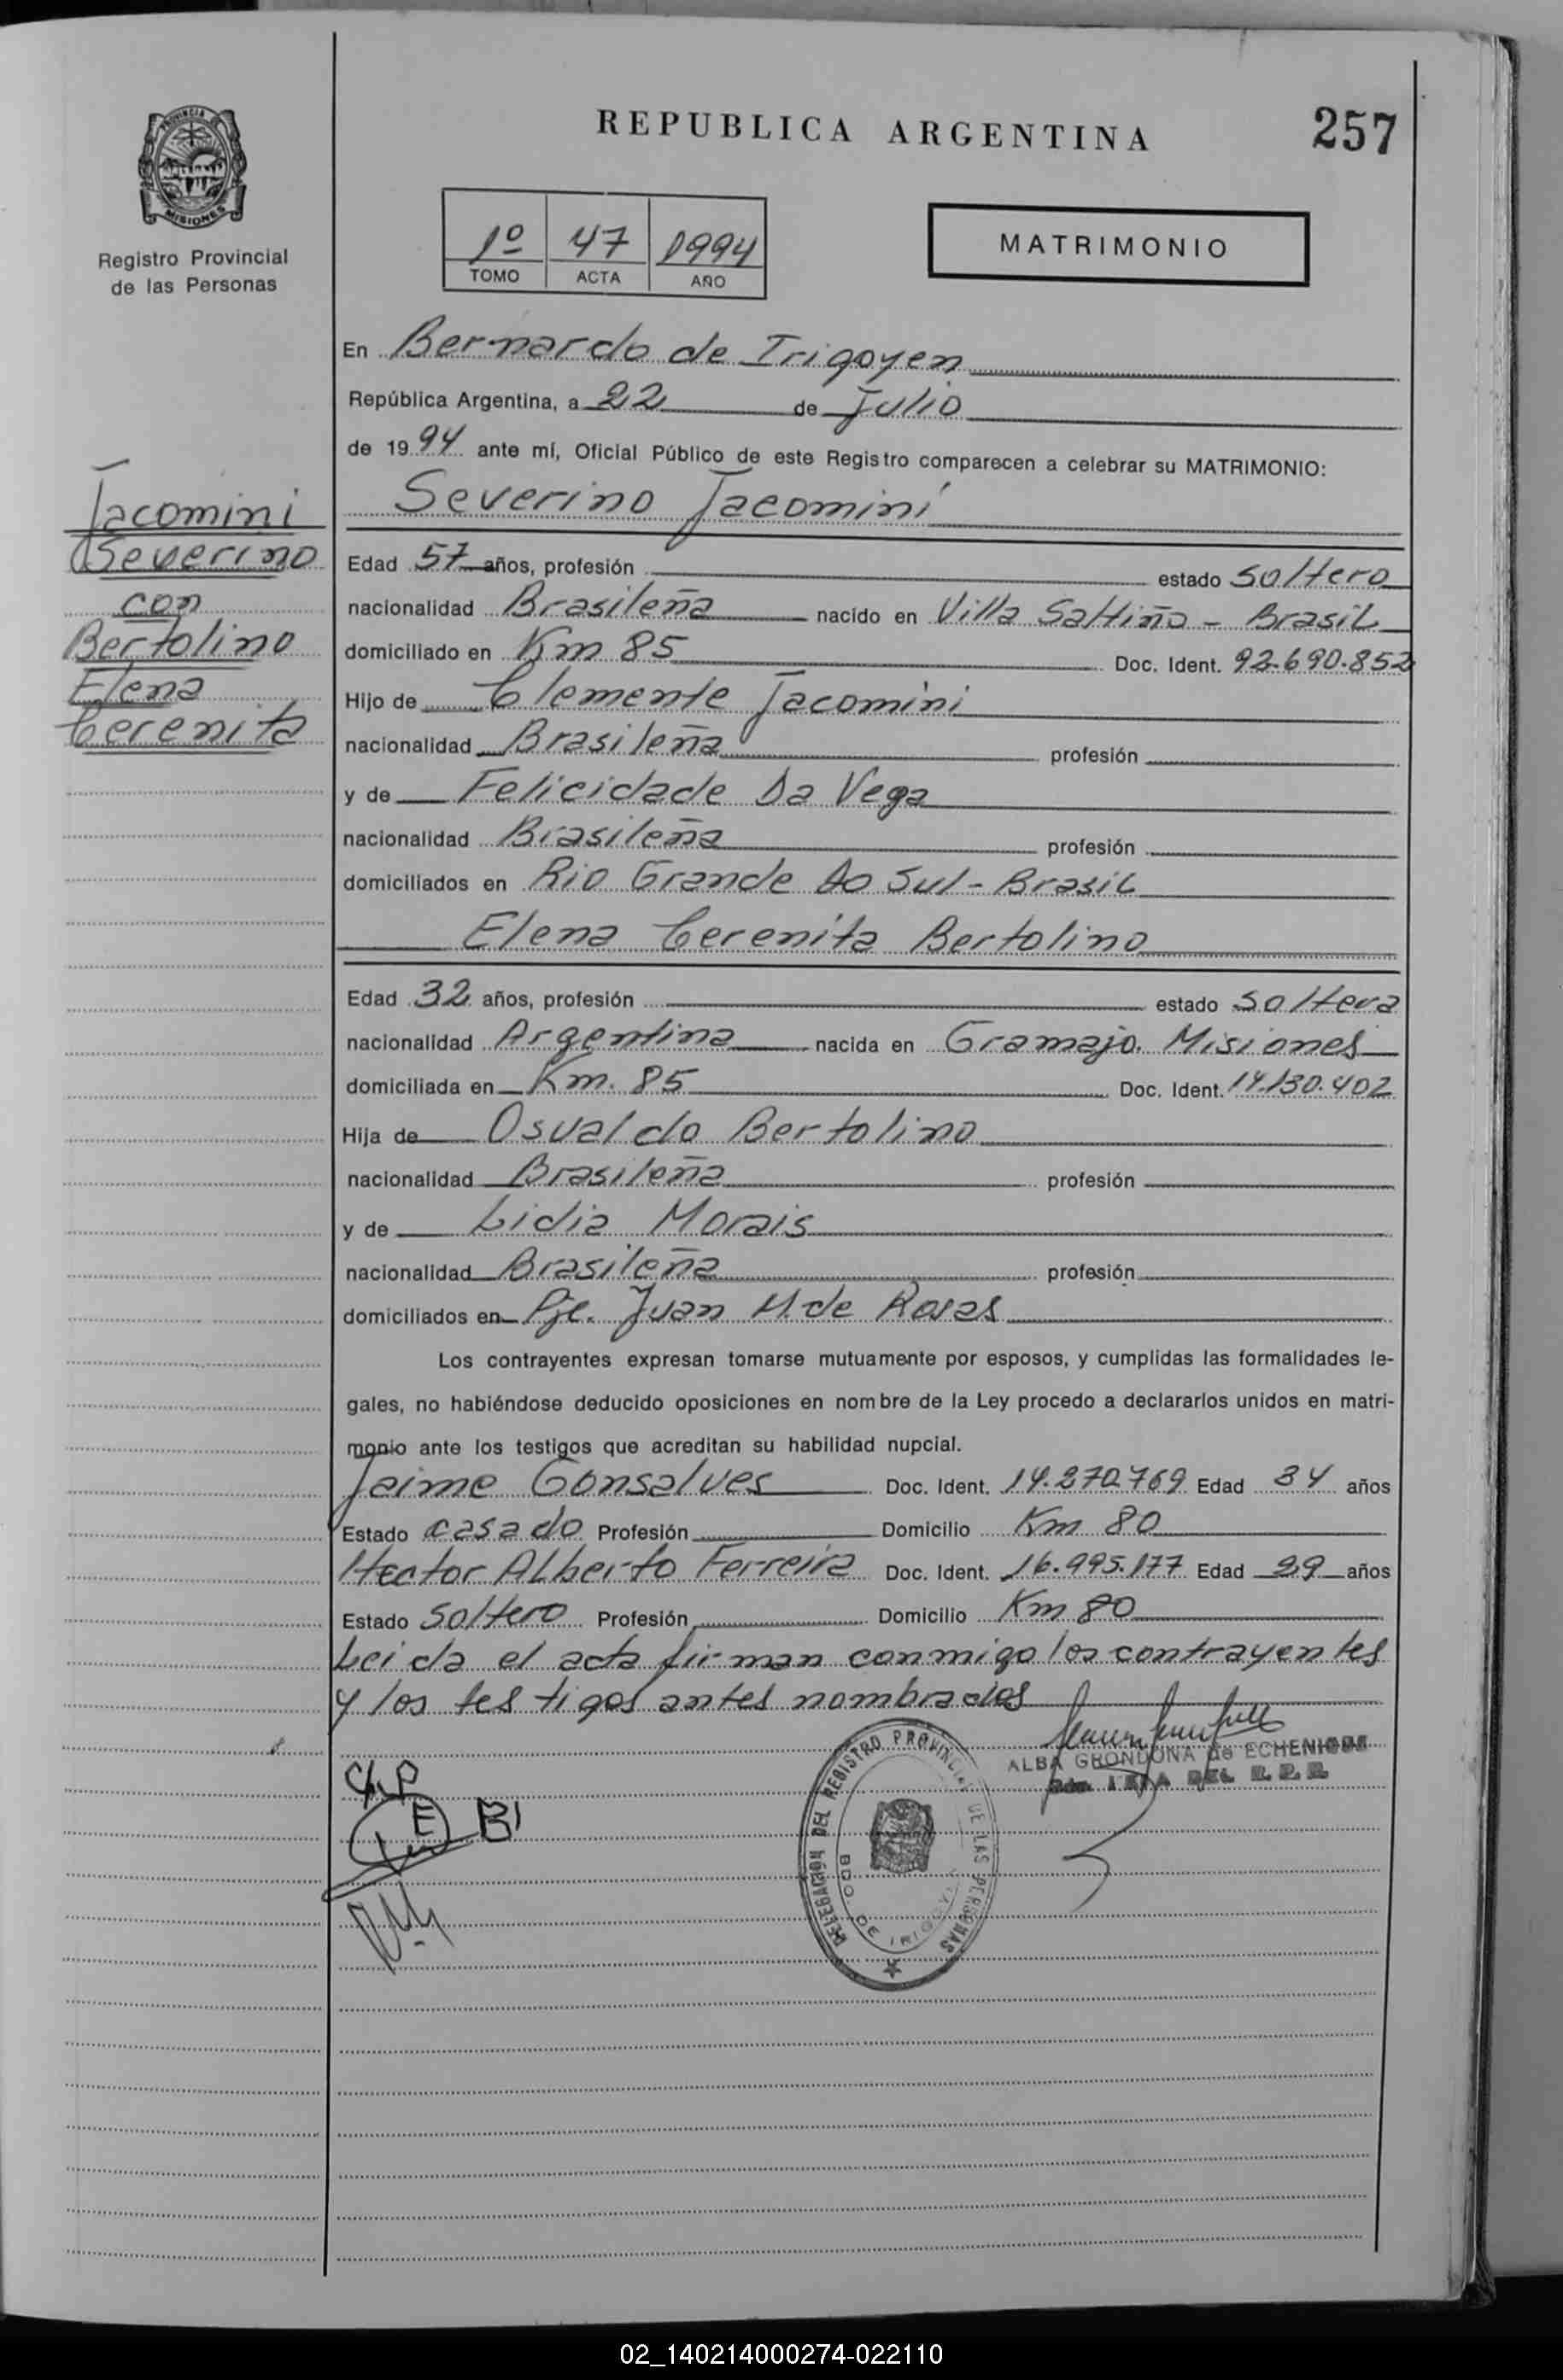 REPUBLICA ARGENTINA
257
PROVINCIA DE
MISIONES
Registro Provincial
de las Personas
1º 47 1994
TOMO ACTA AÑO
MATRIMONIO
En Bernardo de Irigoyen
República Argentina, a 22 de Julio
de 1994 ante mí, Oficial Público de este Registro comparecen a celebrar su MATRIMONIO:
Jacomini
Severino
con
Bertolino
Elena
Cerenita
Severino Jacomini
Edad 57 años, profesión estado Soltero
nacionalidad Brasileña nacido en Villa Saltiño - Brasil
domiciliado en Km 85 Doc. Ident. 92.690.852
Hijo de Clemente Jacomini
nacionalidad Brasileña profesión
y de Felicidade Da Vega
nacionalidad Brasileña profesión
domiciliados en Rio Grande Do Sul - Brasil
Elena Cerenita Bertolino
Edad 32 años, profesión estado Soltera
nacionalidad Argentina nacida en Gramajo. Misiones
domiciliada en Km. 85 Doc. Ident. 14.130.402
Hija de Osvaldo Bertolino
nacionalidad Brasileña profesión
y de Lidia Morais
nacionalidad Brasileña profesión
domiciliados en Pje. Juan M. de Rosas
Los contrayentes expresan tomarse mutuamente por esposos, y cumplidas las formalidades le-
gales, no habiéndose deducido oposiciones en nombre de la Ley procedo a declararlos unidos en matri-
monio ante los testigos que acreditan su habilidad nupcial.
Jaime Gonsalves Doc. Ident. 14.270.769 Edad 34 años
Estado casado Profesión Domicilio Km 80
Hector Alberto Ferreira Doc. Ident. 16.995.177 Edad 29 años
Estado Soltero Profesión Domicilio Km 80
Leida el acta firman conmigo los contrayentes
y los testigos antes nombrados
ALBA GRONDONA de ECHENIQUE
DELEGACIÓN DEL REGISTRO PROVINCIAL DE LAS PERSONAS
BDO. DE IRIGOYEN
E B
02_140214000274-022110